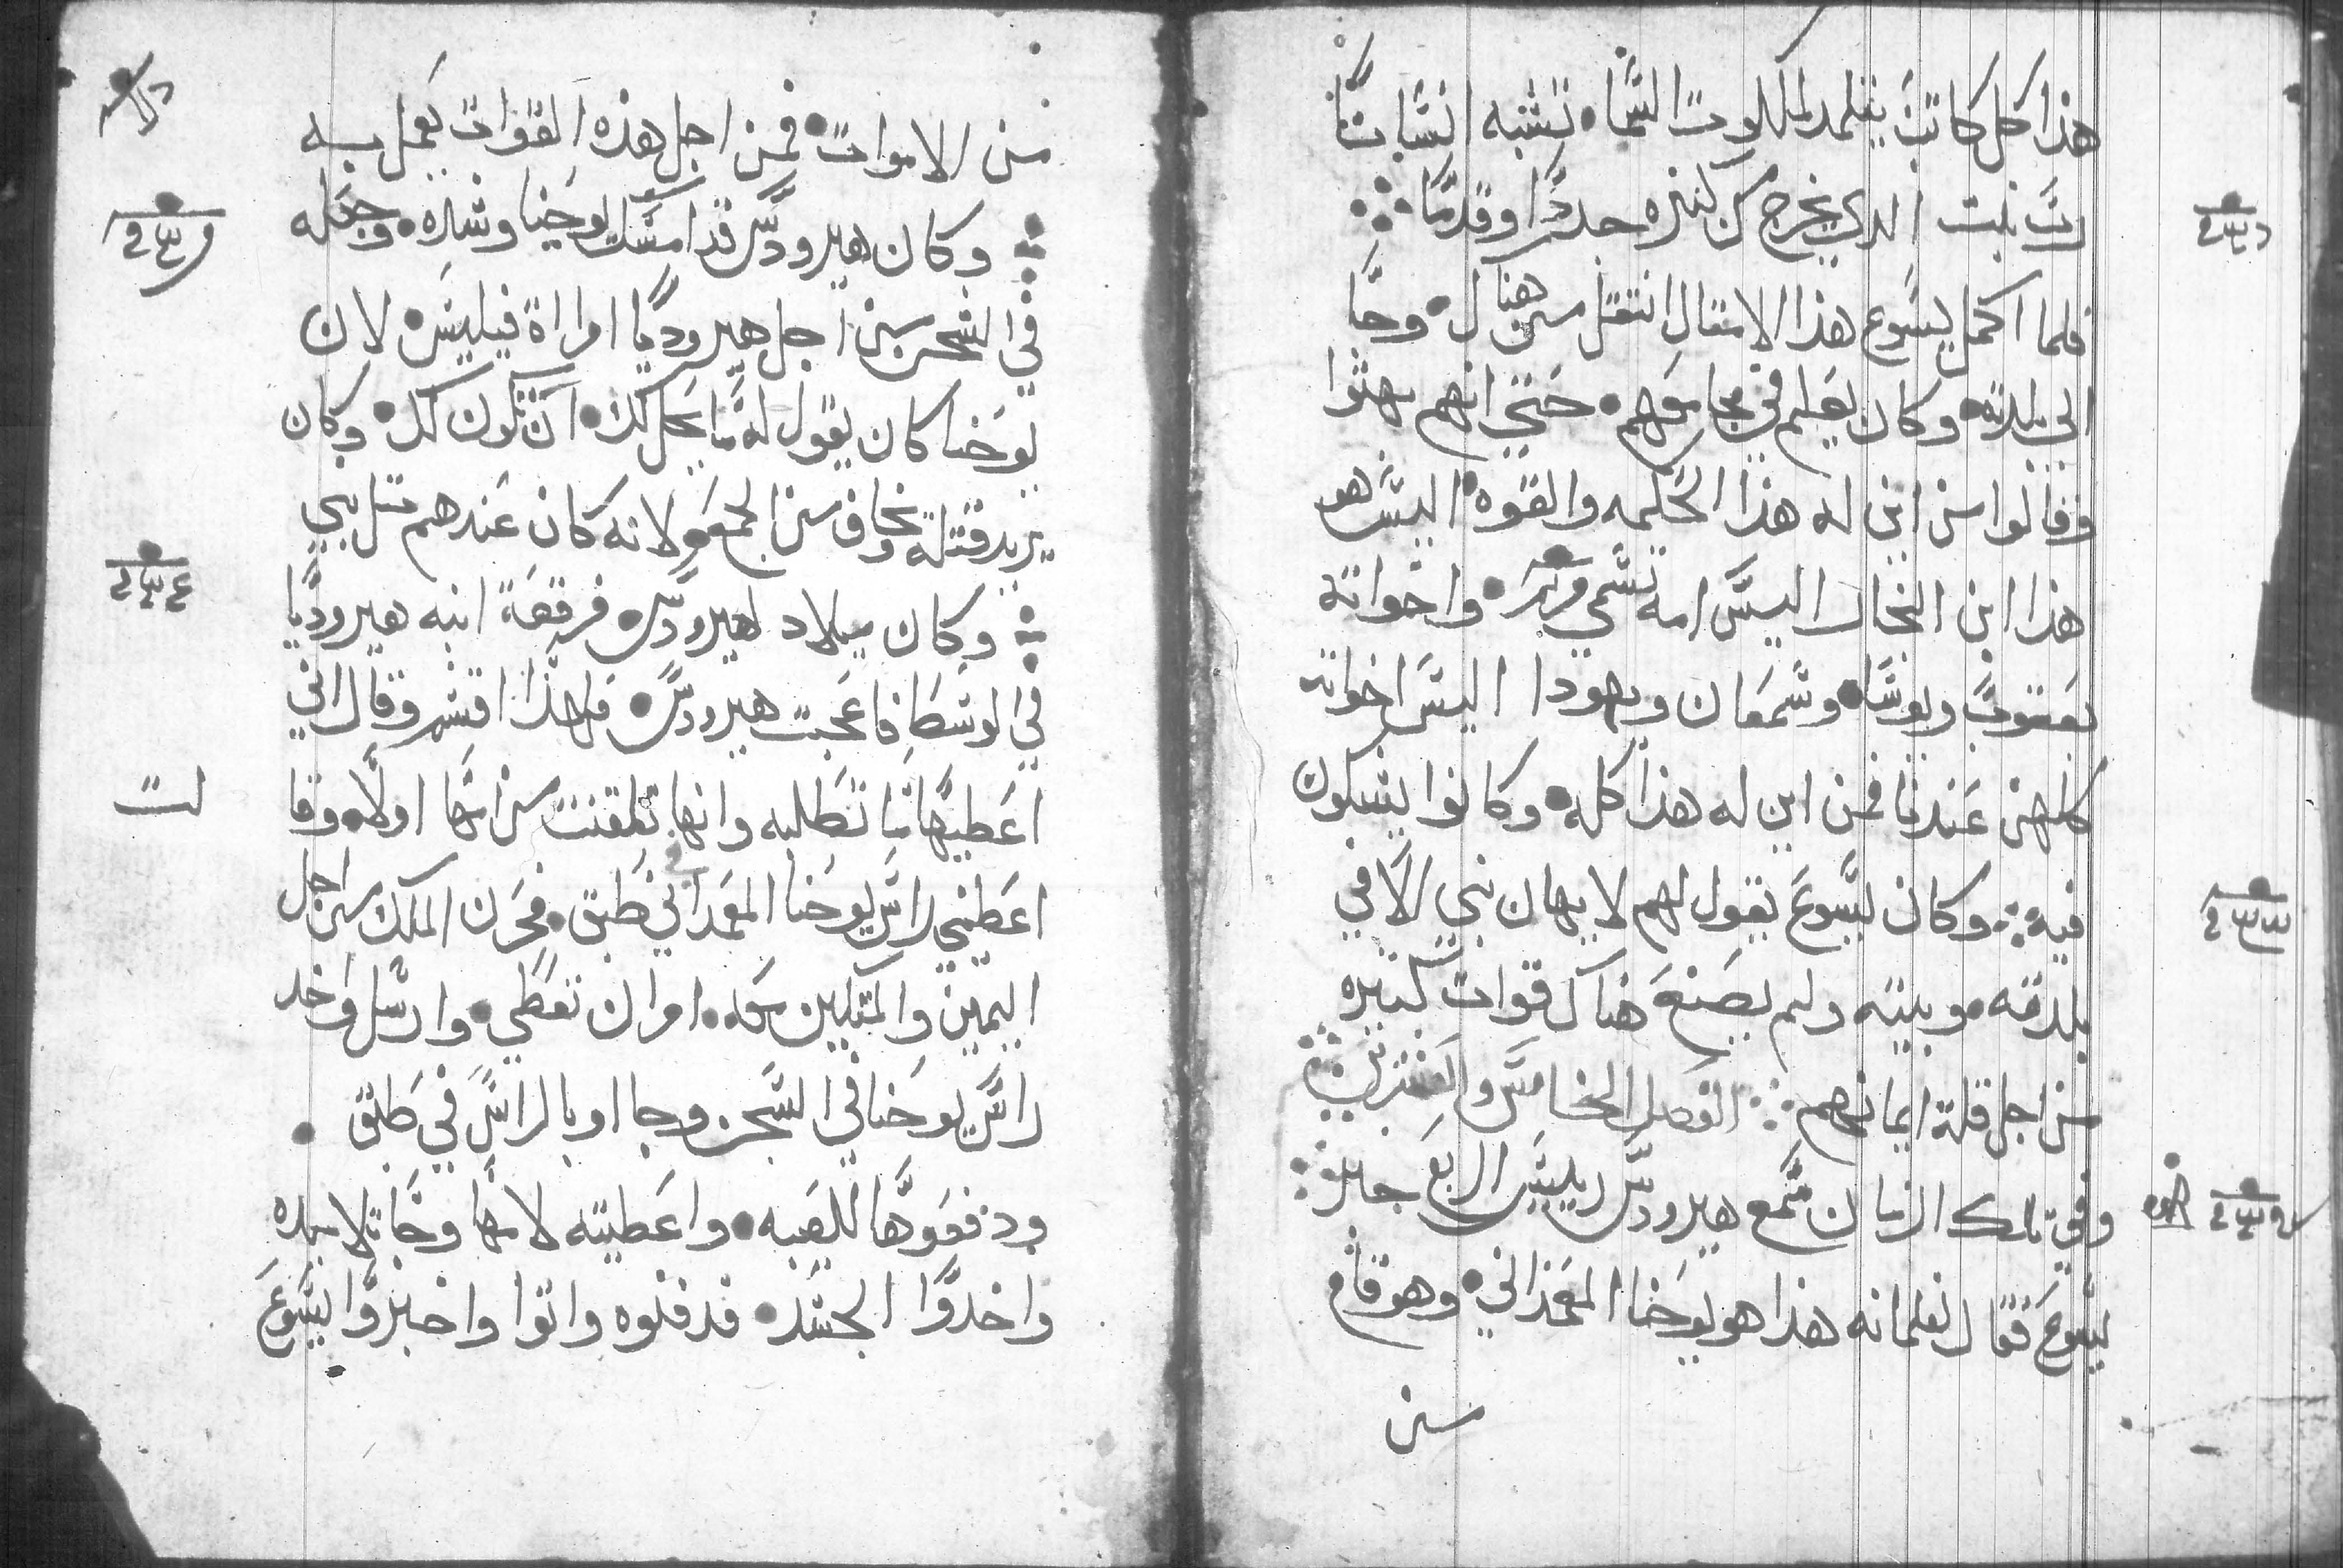 هذا كل كاتب يتلمد لملكوت السما • تشبه انسانا
رب بيت الدي يخرج من كنزه جددا وقدما
فلما اكمل يسوع هذا الامتال انتقل من هناك • وجا
الي بلدته • وكان يعلم في مجامعهم • حتي انهم بهتوا
وقالوا من اين له هذا الحكمه والقوه • اليس هو
هذا ابن النجار اليس امه تسمي مريم • واخواته
يعقوب ويوسا • وسمعان ويهودا اليس اخواته
كلهن عندنا فمن اين له هذا كله • وكانوا يشكون
فيه ∴ وكان يسوع يقول لهم لا يهان نبي الا في
بلدته • وبيته ولم يصنع هناك قوات كتيره
من اجل قلة ايمانهم ∴ الفصل الخامس والعشرين
وفي تلك الزمان سمع هيرودس رييس الربع خبر
يسوع فقال لغلمانه هذا هو يوحنا المعمداني • وهو قام
من
من الاموات • فمن اجل هذه القوات يعمل به
وكان هيرودس قد امسك يوحنا وشده • وجعله
في السجن من اجل هيروديا امراة فيلبس • لان
يوحنا كان يقول له ما يحل لك • ان تكون لك • وكان
يريد قتله وخاف من الجمع • لانه كان عندهم متل نبي
وكان ميلاد لهيرودس • فرقصة ابنه هيروديا
في الوسط فاعجبت هيرودس • فلهذا اقسم وقال اني
اعطيها ما تطلبه وانها تلقنت من امها اولا • وقا
لت
اعطيني راس يوحنا المعمداني في طبق • فحزن الملك من اجل
اليمين والمتكيين معه • امر ان تعطي • وارسل واخد
راس يوحنا في السجن وجااو بالراس في طبق •
ودفعوها للصبيه • واعطيته لامها وجا تلاميده
واخدوا الجسد • فدفنوه واتوا واخبروا يسوع